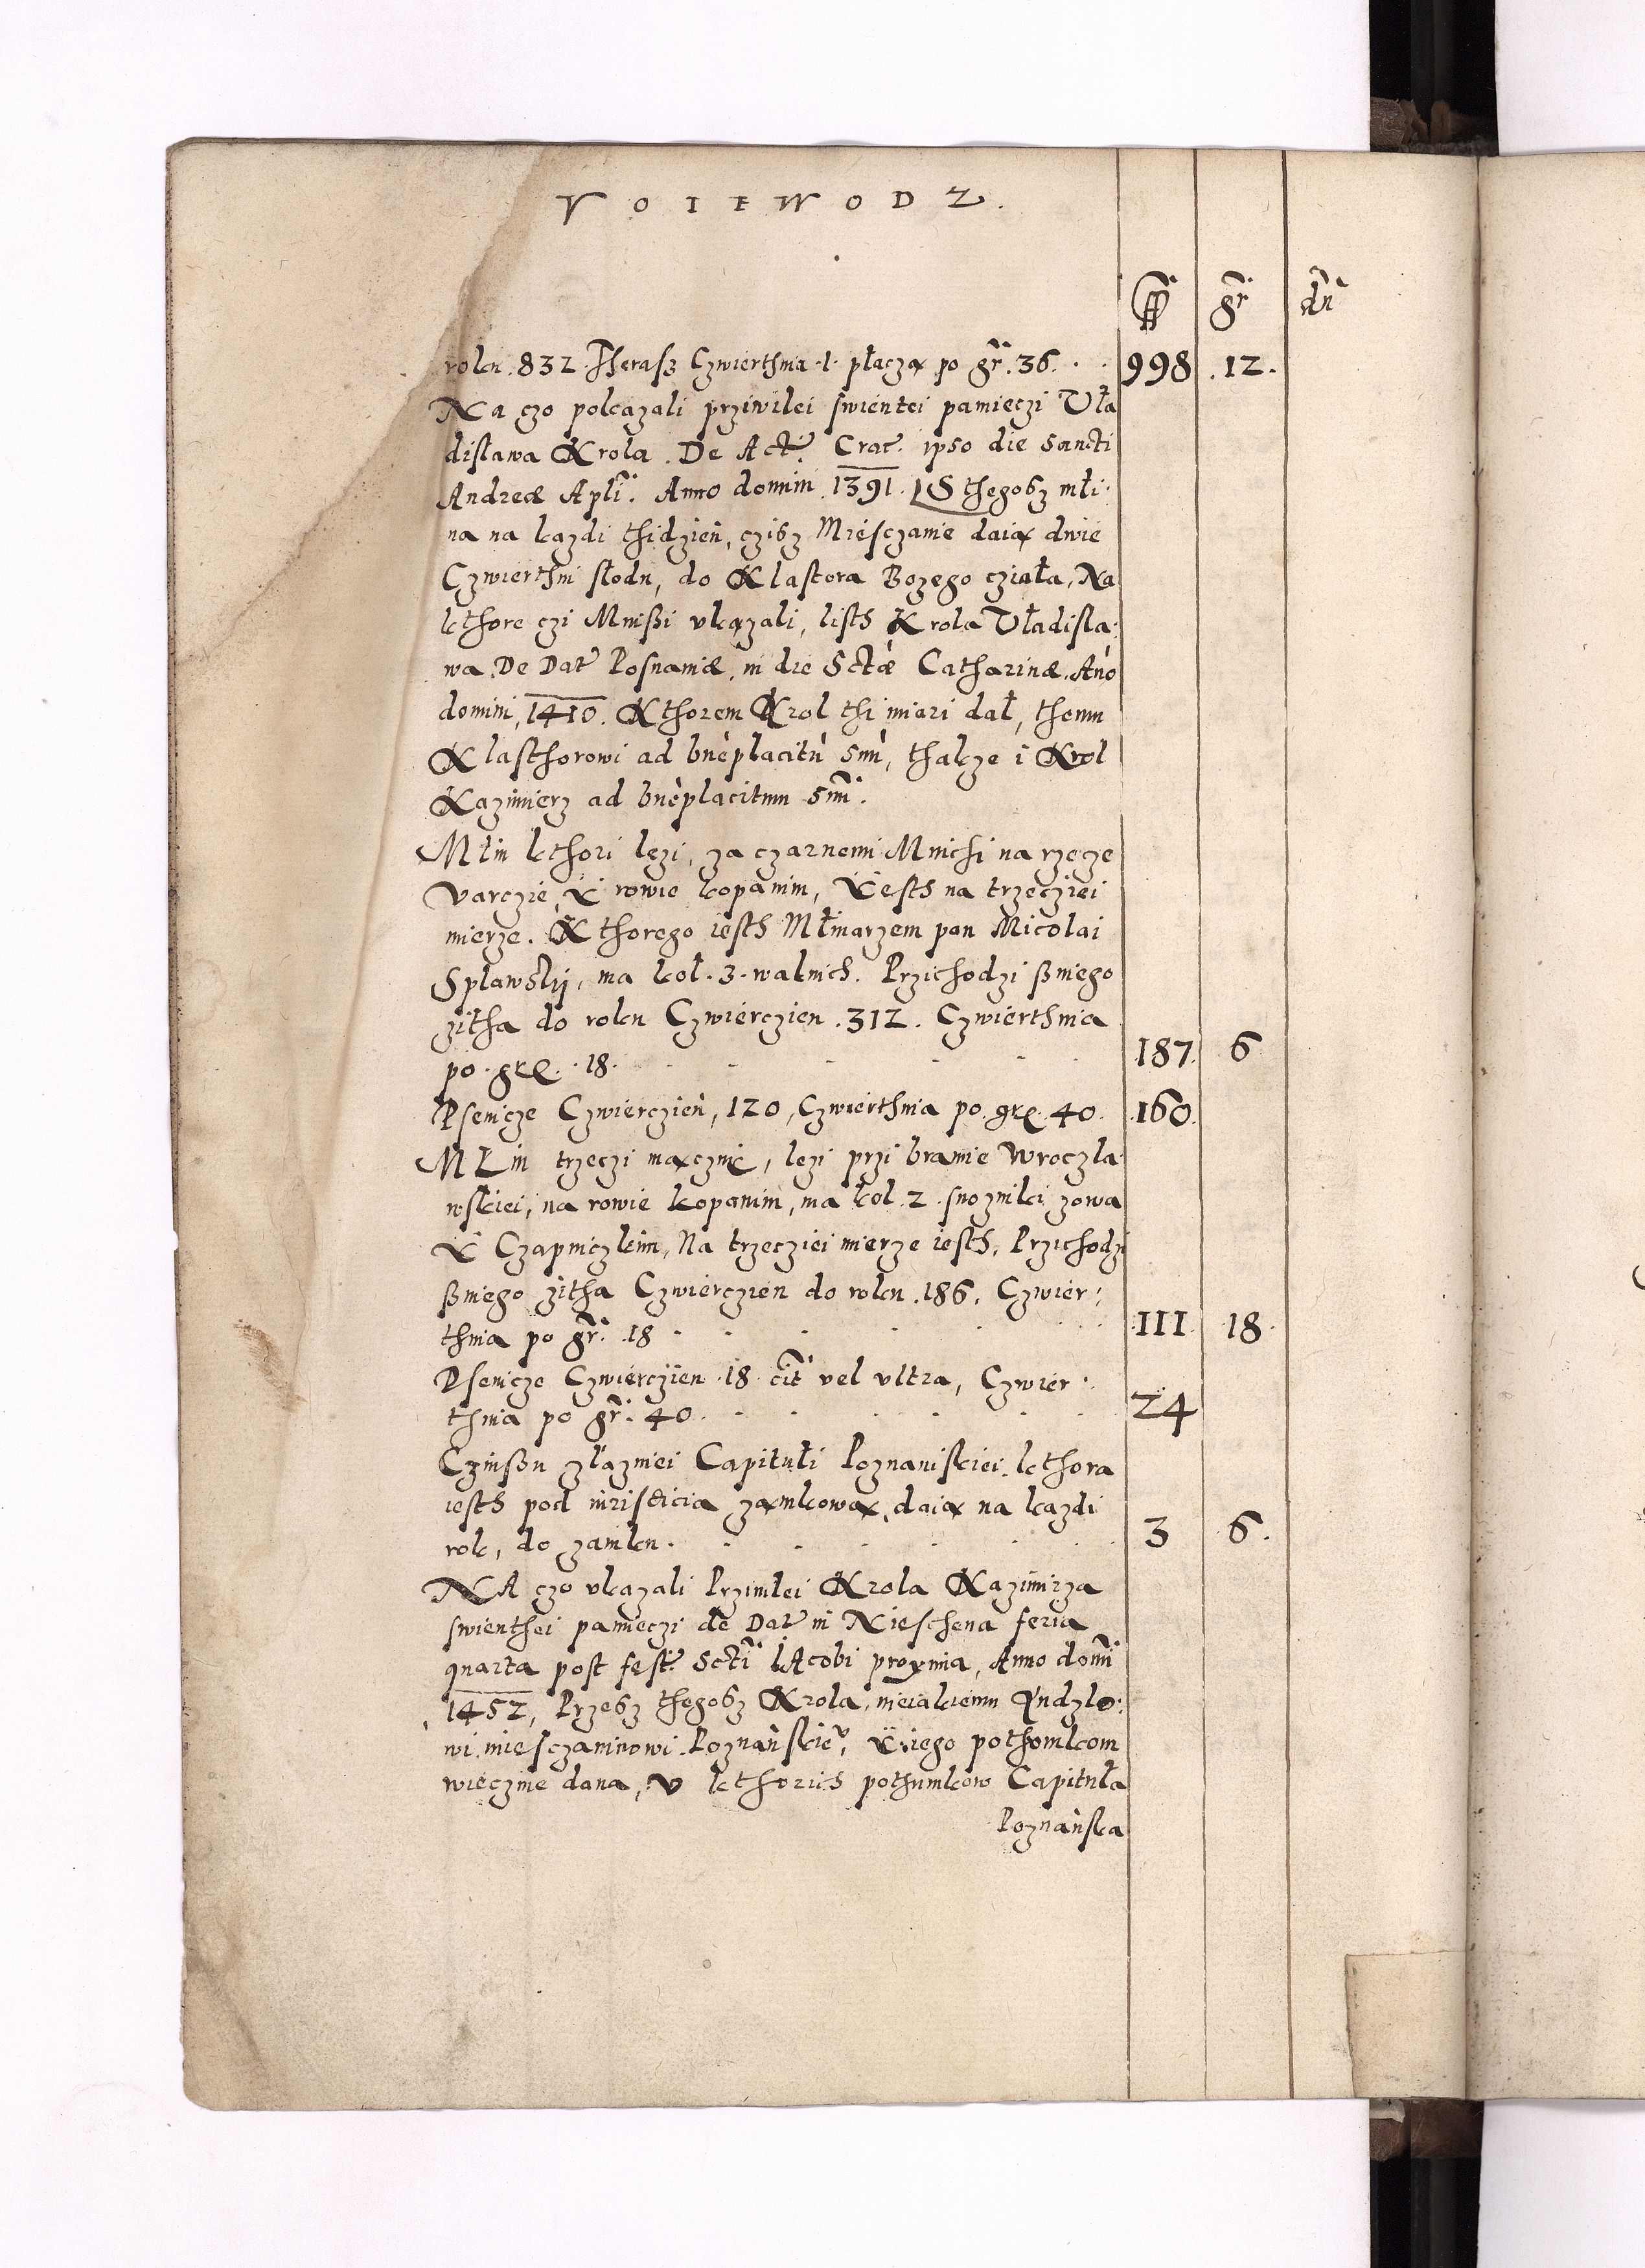 VOIEWODZ.
ff gr dn
roku .832. Theras Czwierthnia .1. płaczą po gr. 36. 998 .12.
Na czo pokazali przivilei swientei pamieczi Vła
disława Krola. De Act. Crac. ipso die Sancti
Andreæ Apli. Anno domini .1391. S thegosz młi:
na na kazdi thidzien, czisz Miesczanie daią dwie
Czwierthni słodu, do Klastora Bozego cziała, Na
kthore czi Mnißi ukazali, listh Krola Vładisla:
wa. De Dat Posnaniæ, in die Sctæ Catharinæ. Ano
domini, 1410. Kthorem Krol thi miari dał, themu
Klasthorowi ad bneplacitu suu, thakze i Krol
Kazimierz ad bneplacitum suu.
Młin kthori lezi, za czarnemi Mnichi na rzecze
Varczie, Y rowie kopanim, Yesth na trzecziei
mierze. Kthorego iesth Młinarzem pan Micolai
Splawskij, ma koł .3. walnich. Przichodzi ßniego
zitha do roku Czwierczien .312. Czwierthnia
po. gr. .18. 187. 6
Psenicze Czwierczien, 120, Czwierthnia po. gr. 40. .160.
MŁin trzeczi mączni, lezi przi bramie Wroczla
wskiei, na rowie kopanim, ma koł .2. snozniki zowa
Y Czapniczkim, Na trzecziei mierze iesth, Przichodzi
ßniego zitha Czwierczien do roku .186. Czwier:
thnia po gr. .18 111. 18.
Psenicze Czwierczien .18. cit vel vltra, Czwier:
thnia po gr. 40. 24
Czinßu złazniei Capitułi Poznaniskiei, kthora
iesth pod iurisdicią zamkową, daią na kazdi
rok, do zamku. 3 6.
NA czo ukazali Przivilei Krola Kazimirza
swienthei pamieczi de Dat in Nieschena feria
quarta post fest. Scti IAcobi proxima, Anno domi
1452, Przesz thegosz Krola, nieiakiemu Yndzlo:
wi miesczaninowi Poznanskie, Y iego pothomkom
wiecznie dana, v kthorich pothumkow Capituła
Poznanska